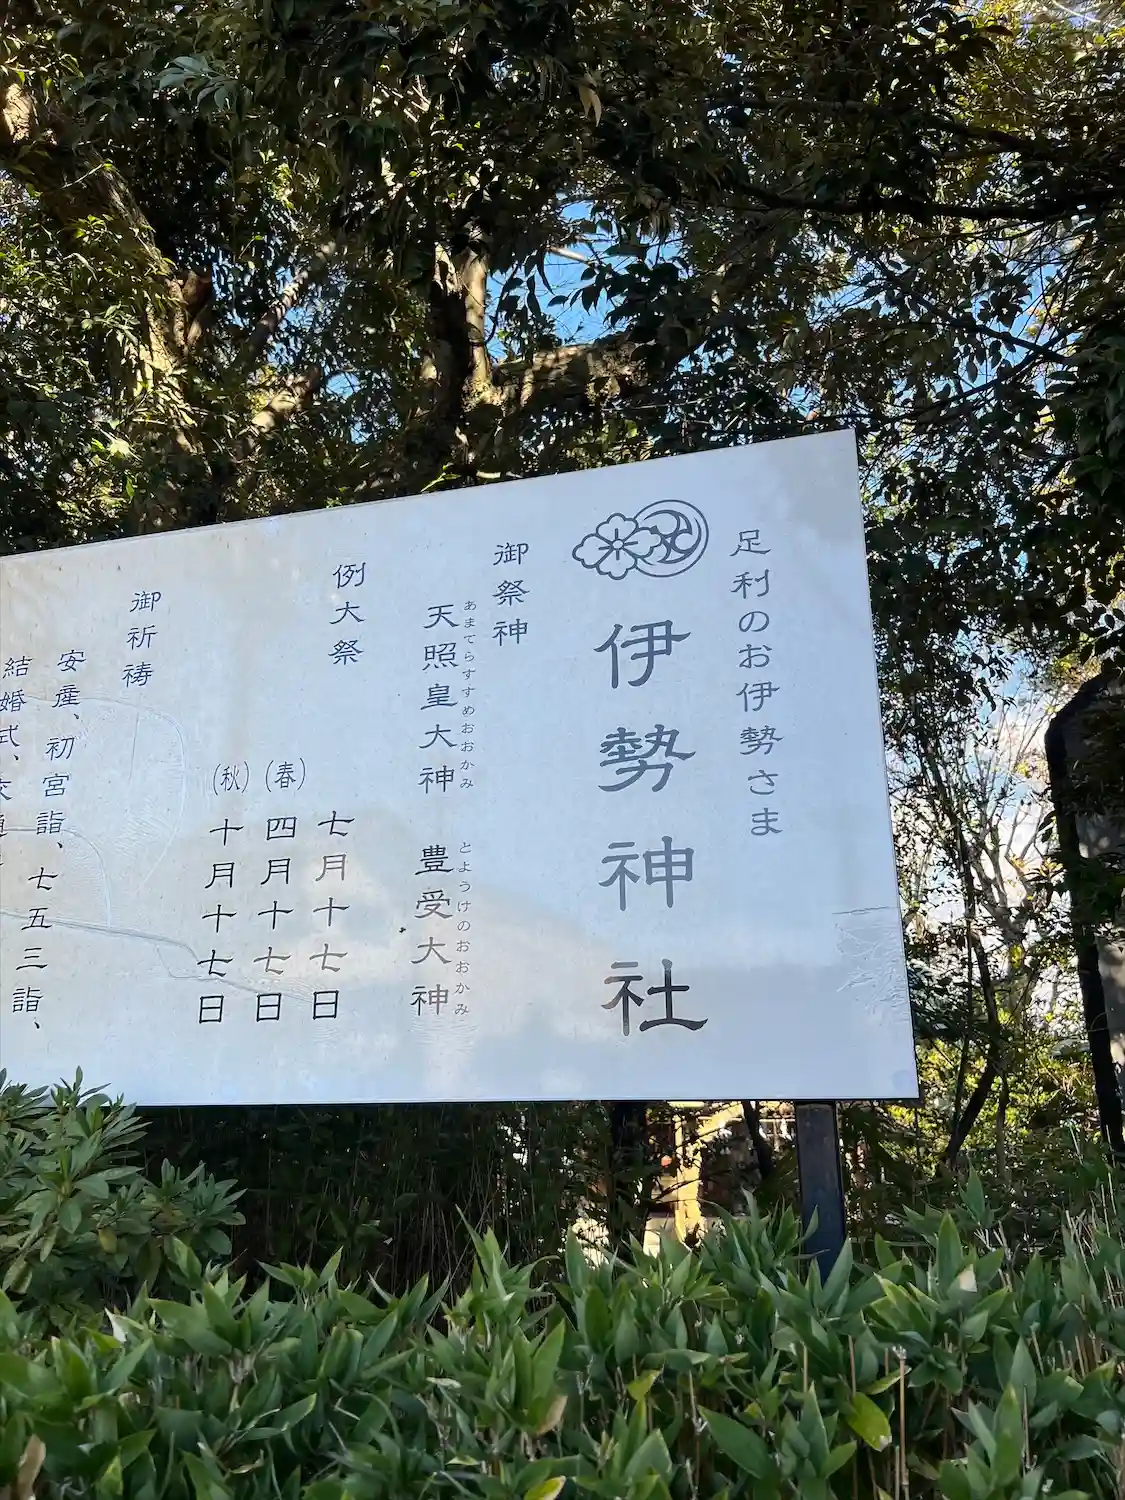 足利のお伊勢さま
伊勢神社
御祭神
天照皇大神 豊受大神
あまてらすすめおおかみ とようけのおおかみ
例大祭
七月十七日
(春)四月十七日
(秋)十月十七日
御祈祷
安産、初宮詣、七五三詣、
結婚式、交通